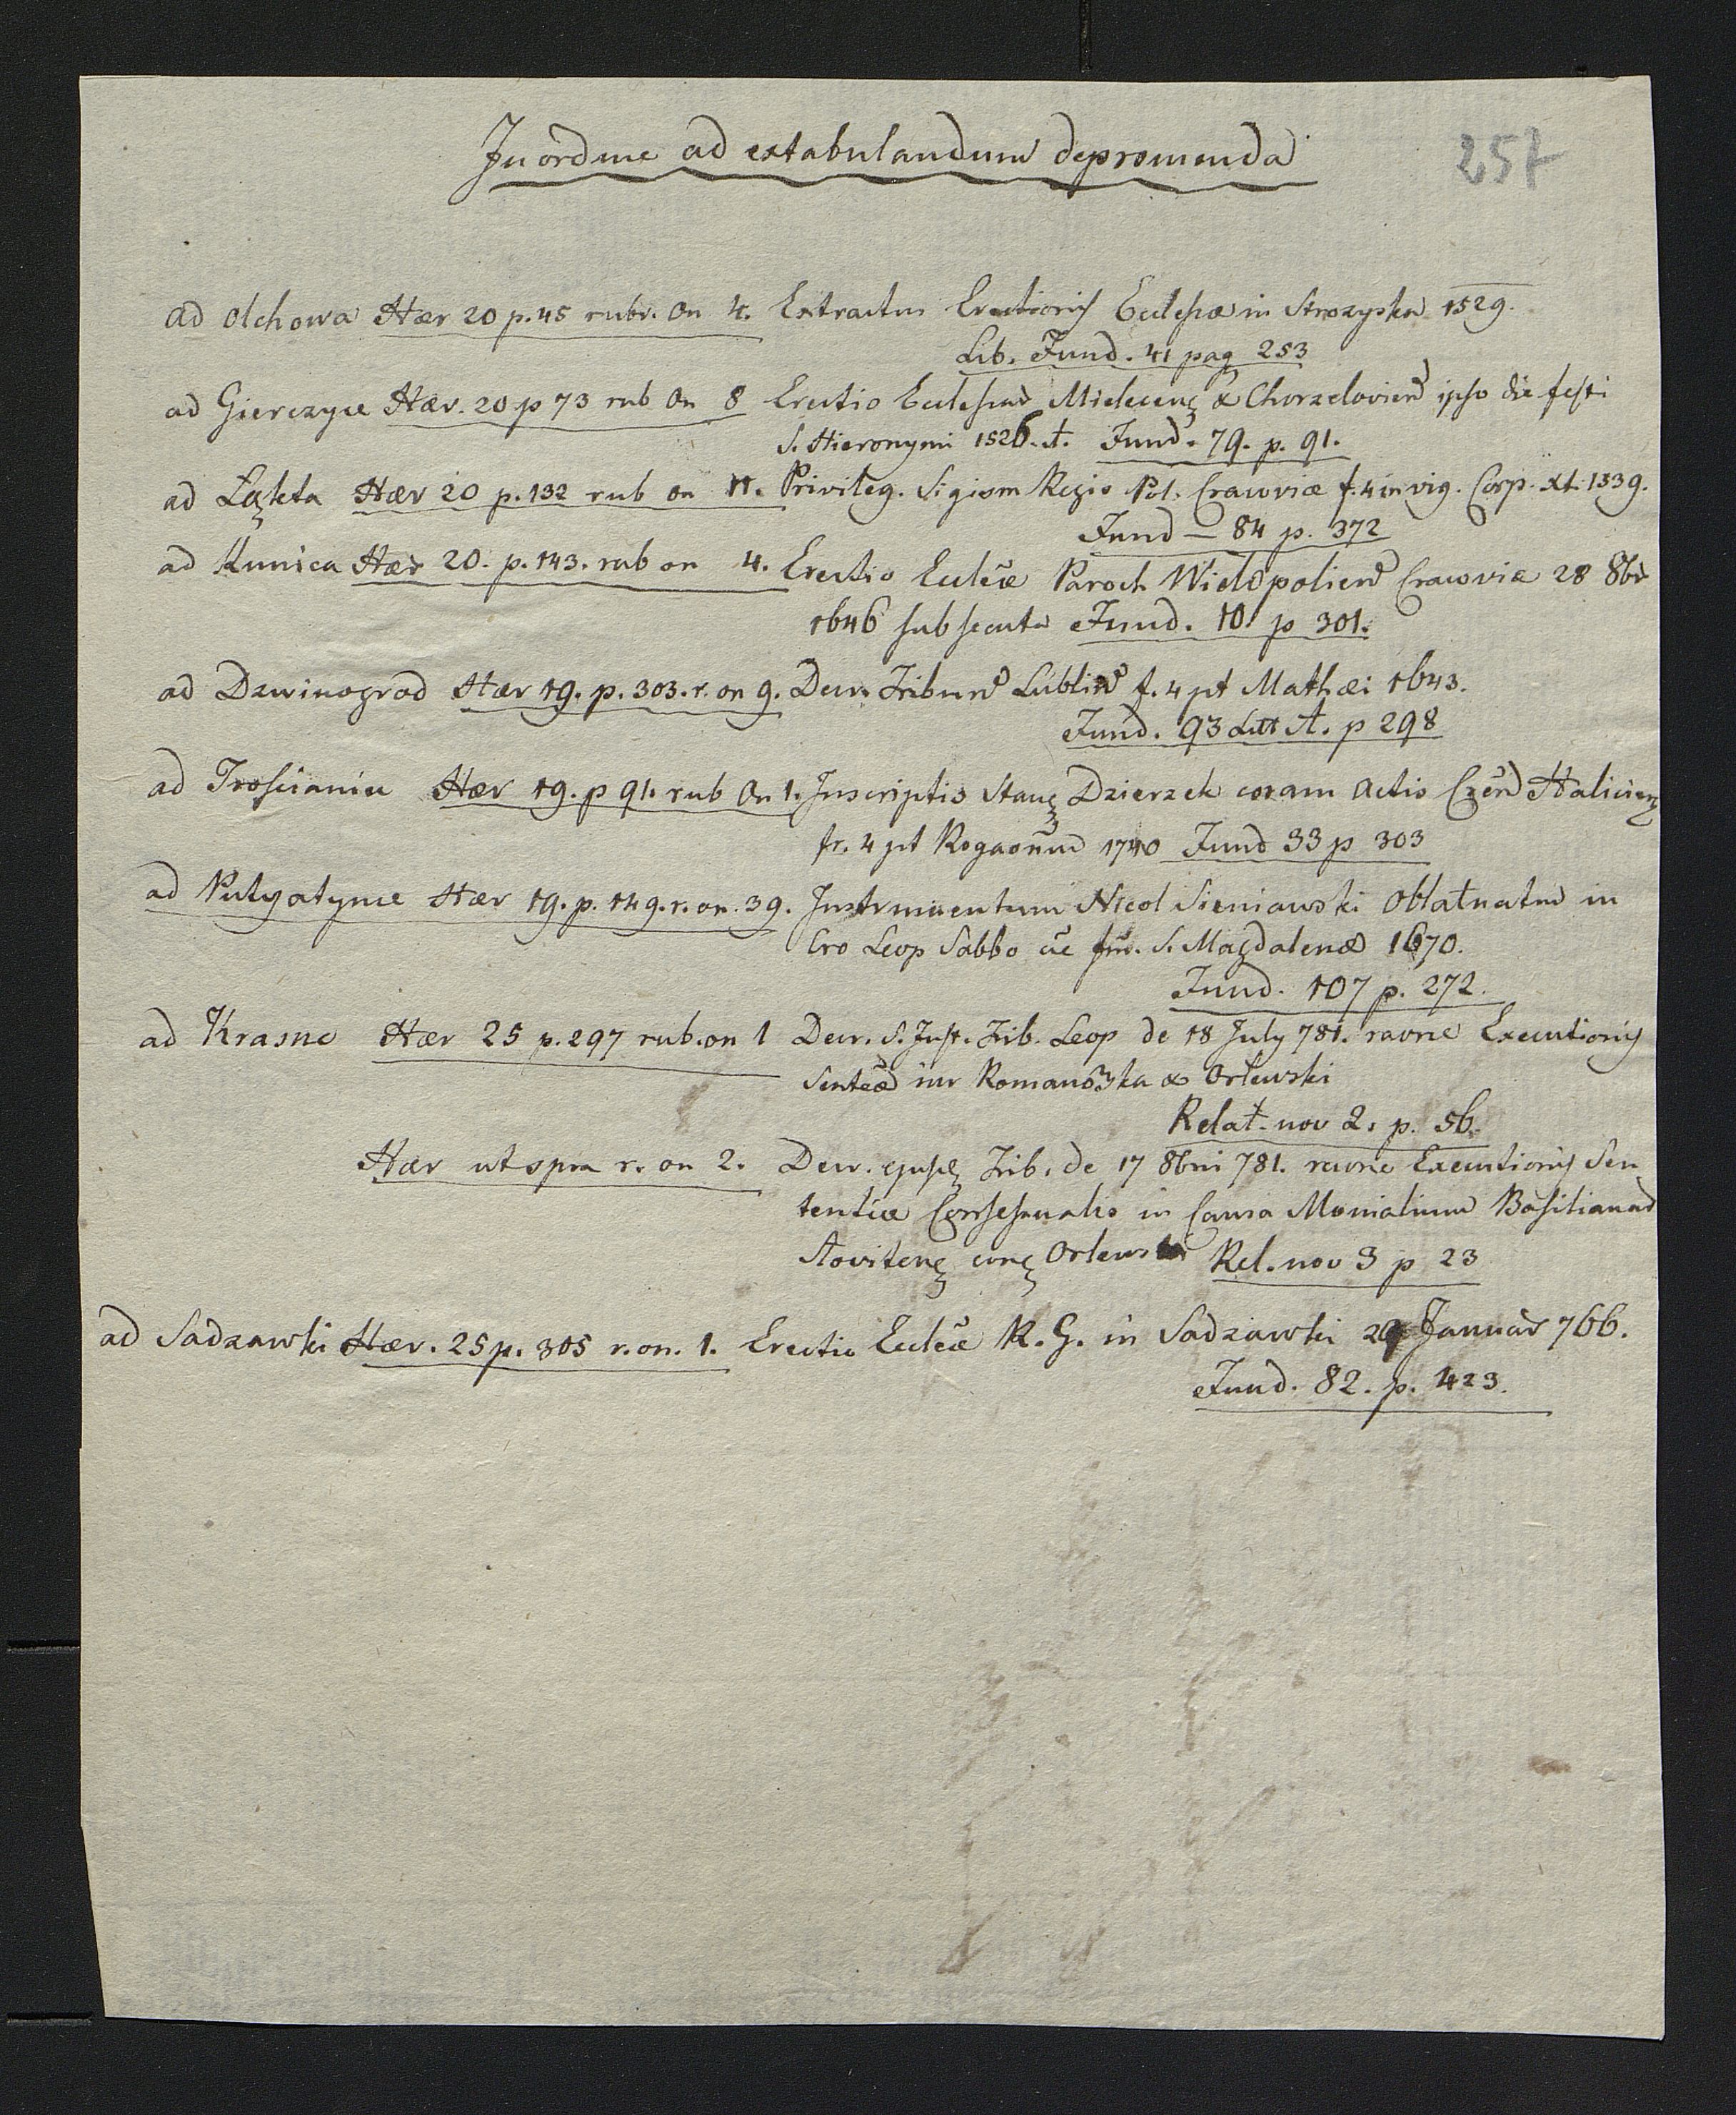 In ordine ad extabulandum depromenda
257
ad Olchowa Hær 20 p. 45 rubr. on 4. Extractus Erectionis Ecclesiæ in Strozyska 1529.
Lib. Fund. 41 pag 253
ad Gierczyce Hær. 20 p 73 rub on 8 Erectio Ecclesiar Mielecens & Chorzelovien ipso die festi
S. Hieronymi 1526. Fund. 79. p. 91.
ad Lązkta Hær 20 p. 132 rub on 11. Privileg. Sigism Regis Pol. Cracoviæ f. 4 in vig. Corp. Xt. 1539.
Fund - 84 p. 372
ad Kunica Hær 20. p. 143. rub on 4. Erectio Eccleæ Paroch Wielopolien Cracoviæ 28 8br
1646 subsecuta Fund. 101 p 301.
ad Dzwinogrod Hær 19. p. 303. r. on 9. Decr. Tribun Lublin f. 4 pt Mathæi 1643.
Fund. 93 Litt A. p 298
ad Trościaniec Hær 19. p 91. rub on 1. Inscriptio Stan Dzierzek coram Actis Halicien
fr. 4 pt Rogaonum 1740 Fund 33 p 303
ad Putyatynce Hær 19. p. 149. r. on. 39. Instrumentum Nicol Sieniawski Oblatuatum in
Cro Leop Sabbo S. Magdalenæ 1670.
Fund. 107 p. 272.
ad Krasne Hær 25 p. 297 rub. on 1 Decr. S. Just. Trib. Leop de 18 July 781. raone Executionis
Senteæ inr Romanowska & Orlewski
Relat. nov 2. p. 56.
Hær ut spra r. on 2. Decr. ejusd Trib. de 17 8bris 781. raone Executionis Sen
tentiæ Consessualis in Causa Monialium Basilianar
Slovitens Orlewska Rel. nov 3 p 23
ad Sadzawki Hær. 25 p. 305 r. on. 1. Erectio Eccleæ R. G. in Sadzawki 29 Januar 766.
Fund. 82. p. 423.